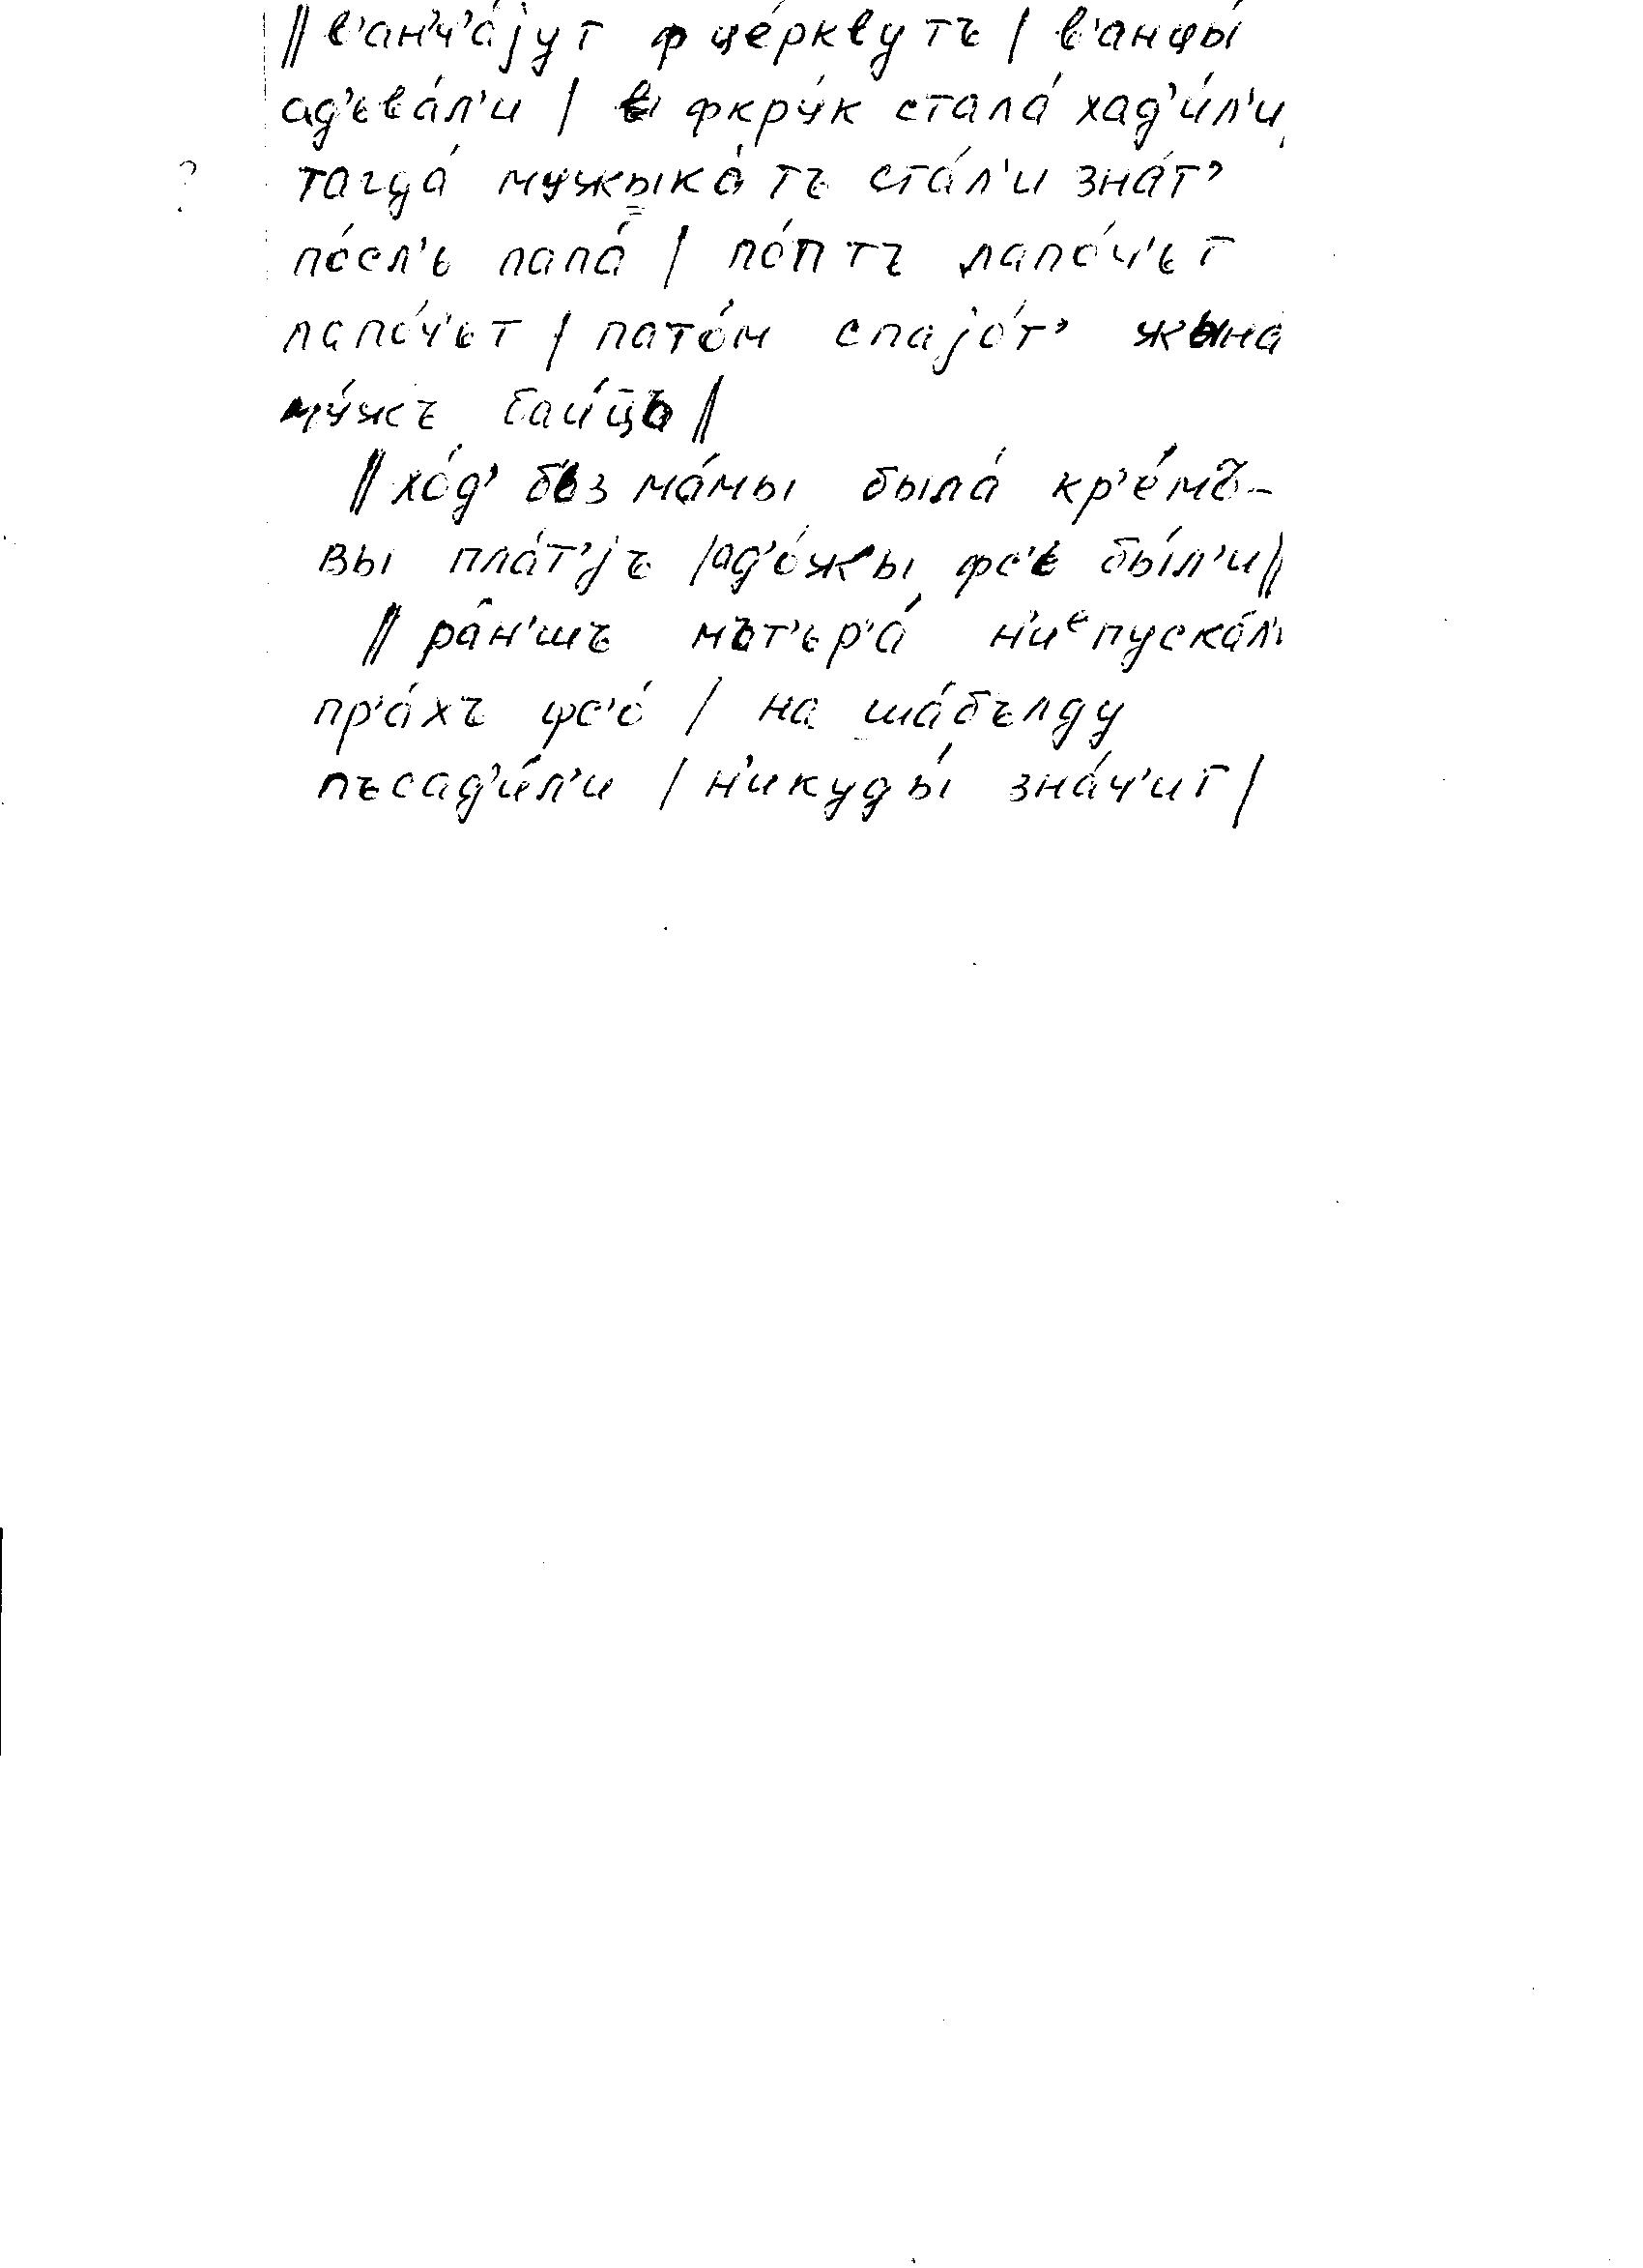 ‖ в'ан'ч'а́jут ф це́рквутъ | в'анцы́
ад'ьва́л'и | фкру́к стала́ хад'и́л'и
? тагда́ мужыка́ тъ ста́л'и зна́т'
по́сл'ь папа́ | по́п тъ лапо́ч'ьт
лапо́ч'ьт | пато́м спаjо́т' жына́
му́жъ баи́цъ ‖
‖ хо́д' бьз ма́мы была́ кр'е́мъ-
вы пла́т'jъ | ад'о́жы фс'ь бы́л'и ‖
‖ ра̂н'шъ мът'ьр'а́ н'иᵉпуска́л'и
пр'а́хъ фс'о́ | на ша́бълду
пъсад'и́л'и | н'икуды́ зна́ч'ит |